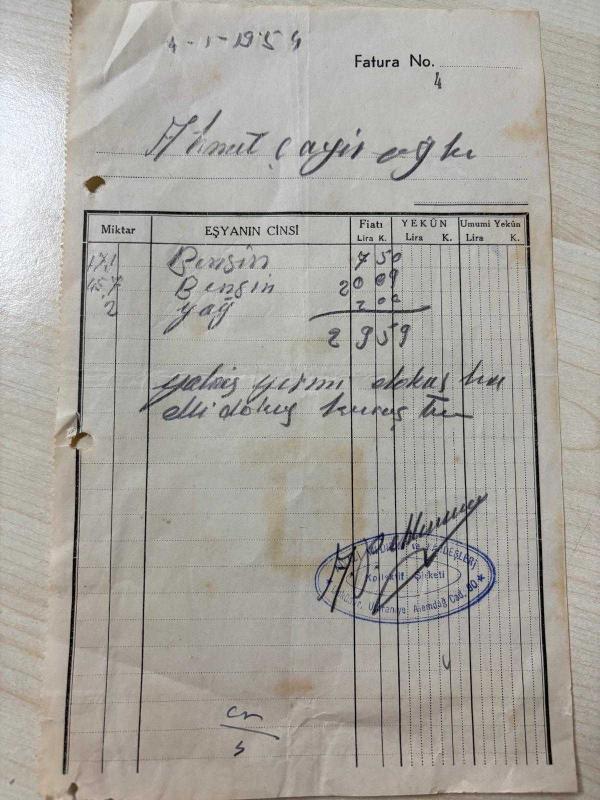 4-1-1954
Fatura No.
4
Ahmet Çayır oğlu
Miktar EŞYANIN CİNSİ Fiatı YEKÛN Umumi Yekûn
Lira K. Lira K. Lira K.
171 Bensin 7 50
45.7 Bensin 20 09
2 yağ 2 00
29 59
yalnız yirmi dokuz lira
elli dokuz kuruş tur
KARDEŞLERİ
Kollektif Şirketi
Ümraniye Alemdağ Cad. 80